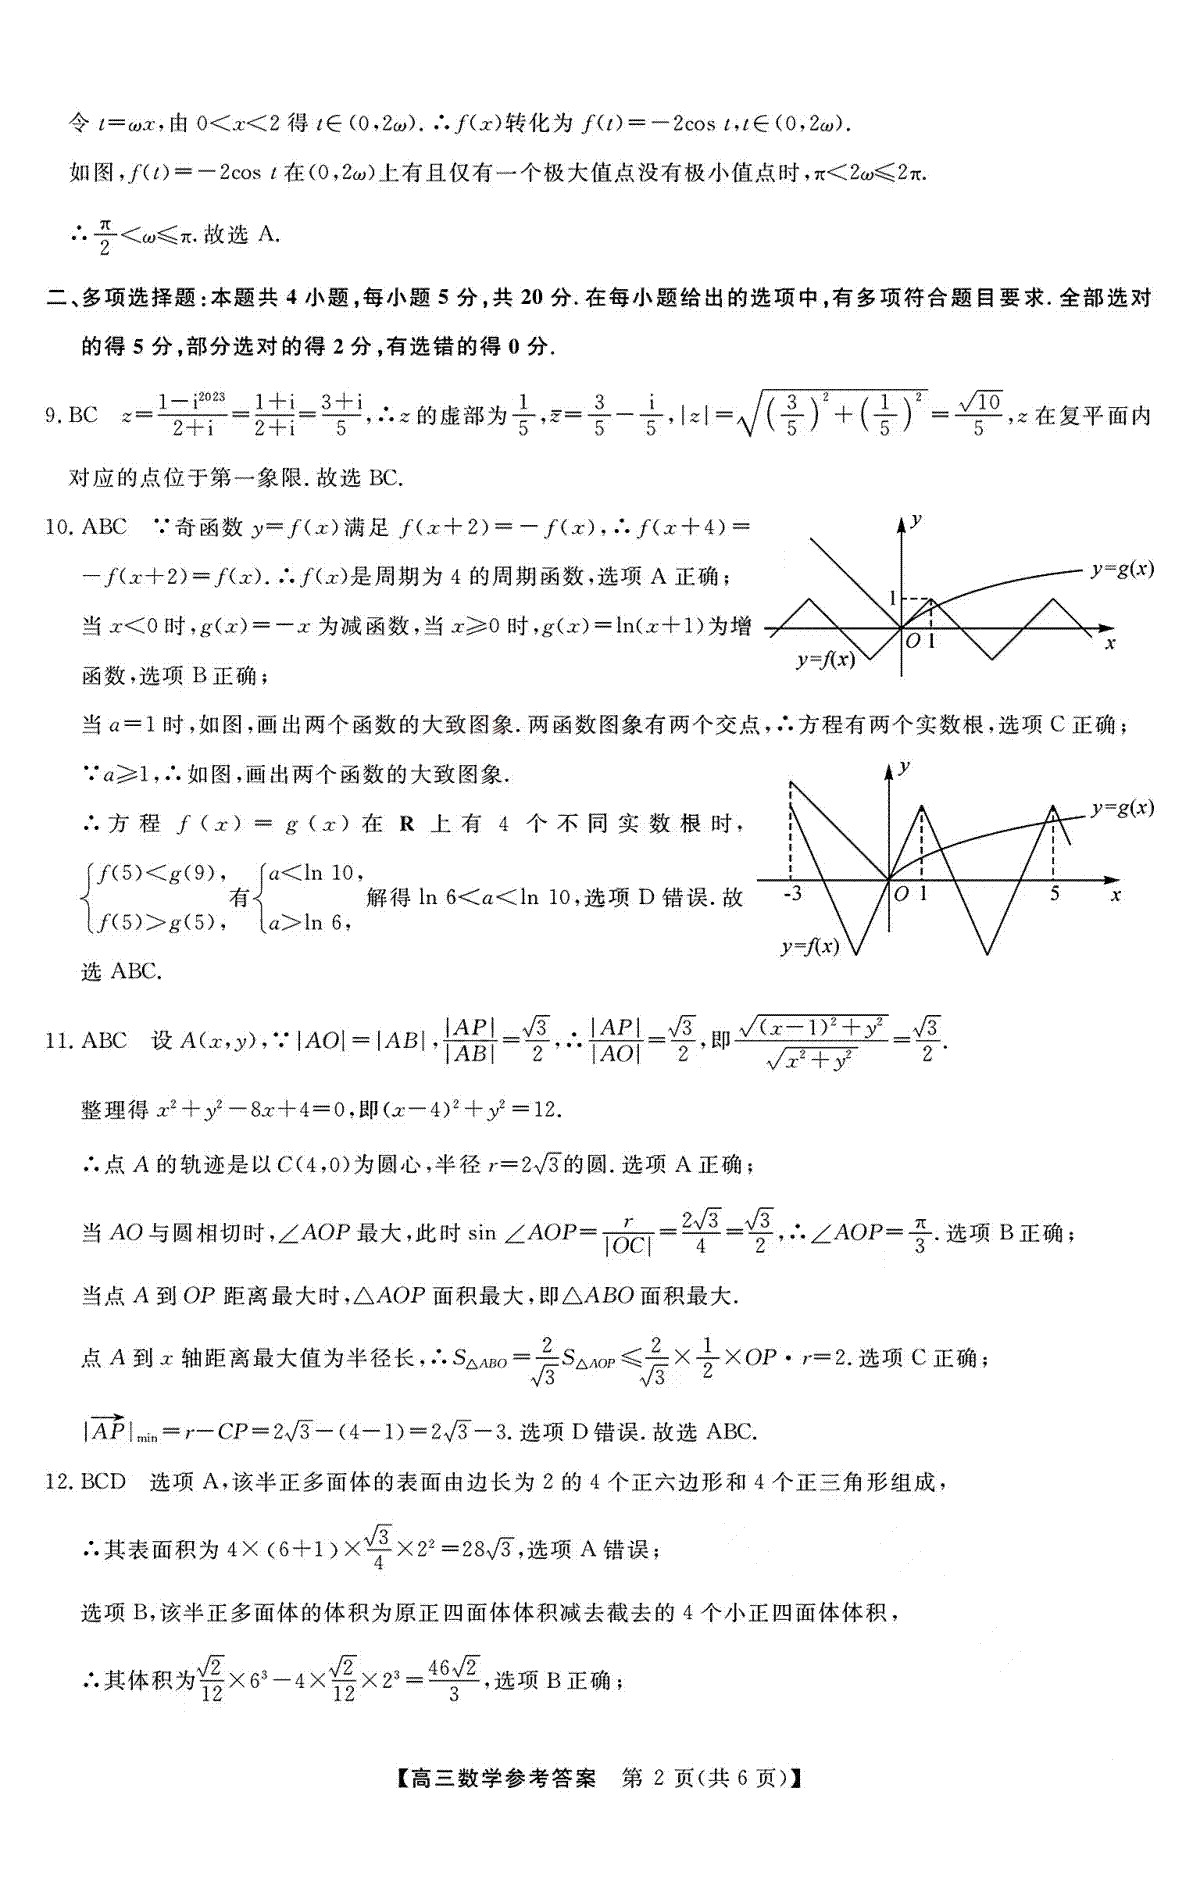 令 t=ωx,由 0<x<2 得 t∈(0,2ω).∴f(x)转化为 f(t)=-2cos t,t∈(0,2ω).
如图,f(t)=-2cos t 在(0,2ω)上有且仅有一个极大值点没有极小值点时,π<2ω≤2π.
∴π/2<ω≤π.故选 A.
二、多项选择题:本题共 4 小题,每小题 5 分,共 20 分.在每小题给出的选项中,有多项符合题目要求.全部选对
的得 5 分,部分选对的得 2 分,有选错的得 0 分.
9. BC z=(1-i²⁰²³)/(2+i)=(1+i)/(2+i)=(3+i)/5,∴z 的虚部为 1/5,z̅=3/5-i/5,|z|=√((3/5)²+(1/5)²)=√10/5,z 在复平面内
对应的点位于第一象限.故选 BC.
10. ABC ∵奇函数 y=f(x)满足 f(x+2)=-f(x),∴f(x+4)=
-f(x+2)=f(x).∴f(x)是周期为 4 的周期函数,选项 A 正确;
当 x<0 时,g(x)=-x 为减函数,当 x≥0 时,g(x)=ln(x+1)为增
函数,选项 B 正确;
y
y=g(x)
1
O 1
x
y=f(x)
当 a=1 时,如图,画出两个函数的大致图象.两函数图象有两个交点,∴方程有两个实数根,选项 C 正确;
∵a≥1,∴如图,画出两个函数的大致图象.
∴方程 f(x)=g(x)在 R 上有 4 个不同实数根时,
{f(5)<g(9), f(5)>g(5), 有{a<ln 10, a>ln 6, 解得 ln 6<a<ln 10,选项 D 错误.故
选 ABC.
y
y=g(x)
-3
O 1
5
x
y=f(x)
11. ABC 设 A(x,y),∵|AO|=|AB|,|AP|/|AB|=√3/2,∴|AP|/|AO|=√3/2,即√((x-1)²+y²)/√(x²+y²)=√3/2.
整理得 x²+y²-8x+4=0,即(x-4)²+y²=12.
∴点 A 的轨迹是以 C(4,0)为圆心,半径 r=2√3的圆.选项 A 正确;
当 AO 与圆相切时,∠AOP 最大,此时 sin ∠AOP=r/|OC|=2√3/4=√3/2,∴∠AOP=π/3.选项 B 正确;
当点 A 到 OP 距离最大时,△AOP 面积最大,即△ABO 面积最大.
点 A 到 x 轴距离最大值为半径长,∴S△ABO=2/√3 S△AOP≤2/√3×1/2×OP·r=2.选项 C 正确;
|AP→|min=r-CP=2√3-(4-1)=2√3-3.选项 D 错误.故选 ABC.
12. BCD 选项 A,该半正多面体的表面由边长为 2 的 4 个正六边形和 4 个正三角形组成,
∴其表面积为 4×(6+1)×√3/4×2²=28√3,选项 A 错误;
选项 B,该半正多面体的体积为原正四面体体积减去截去的 4 个小正四面体体积,
∴其体积为√2/12×6³-4×√2/12×2³=46√2/3,选项 B 正确;
【高三数学参考答案 第 2 页(共 6 页)】